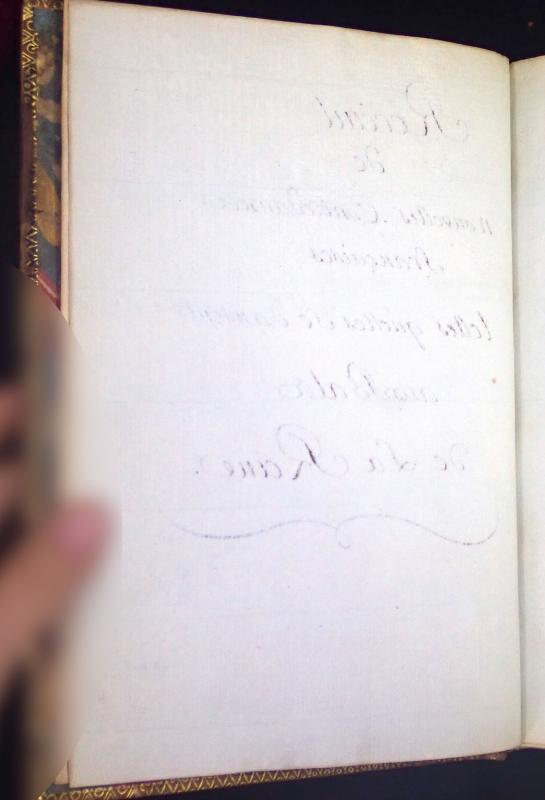 Recüeil
de
nouvelles Contredanses
françaises
telles qu'elles se dansent
aux Bals
de La Reine.